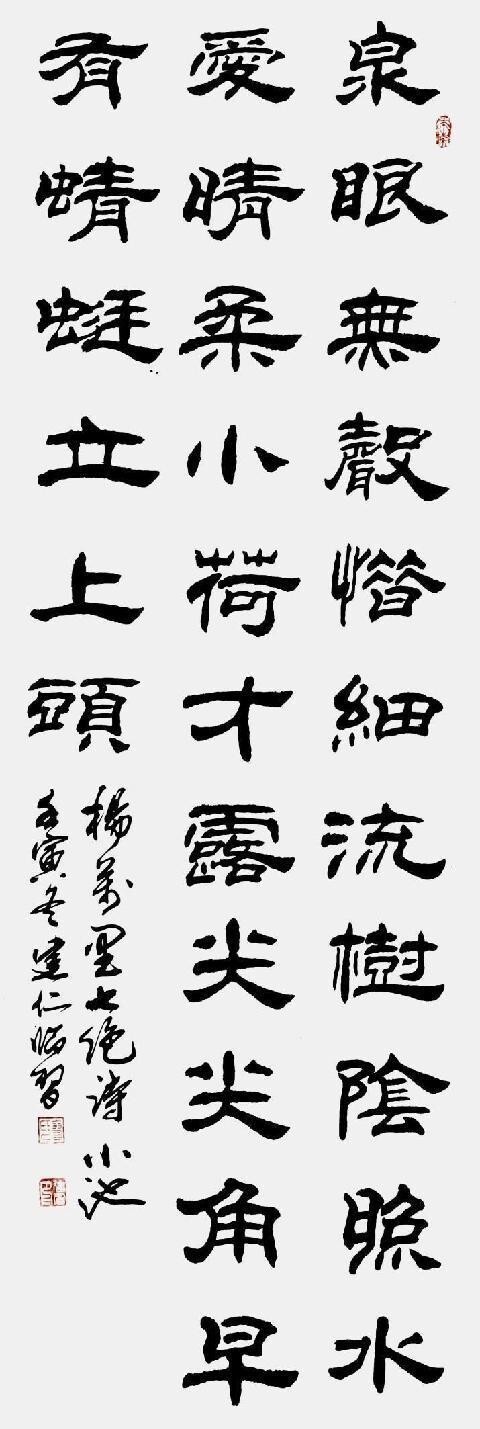 泉眼無聲惜細流樹陰照水
愛晴柔小荷才露尖尖角早
有蜻蜓立上頭
楊萬里七绝诗小池
壬寅冬建仁臨習